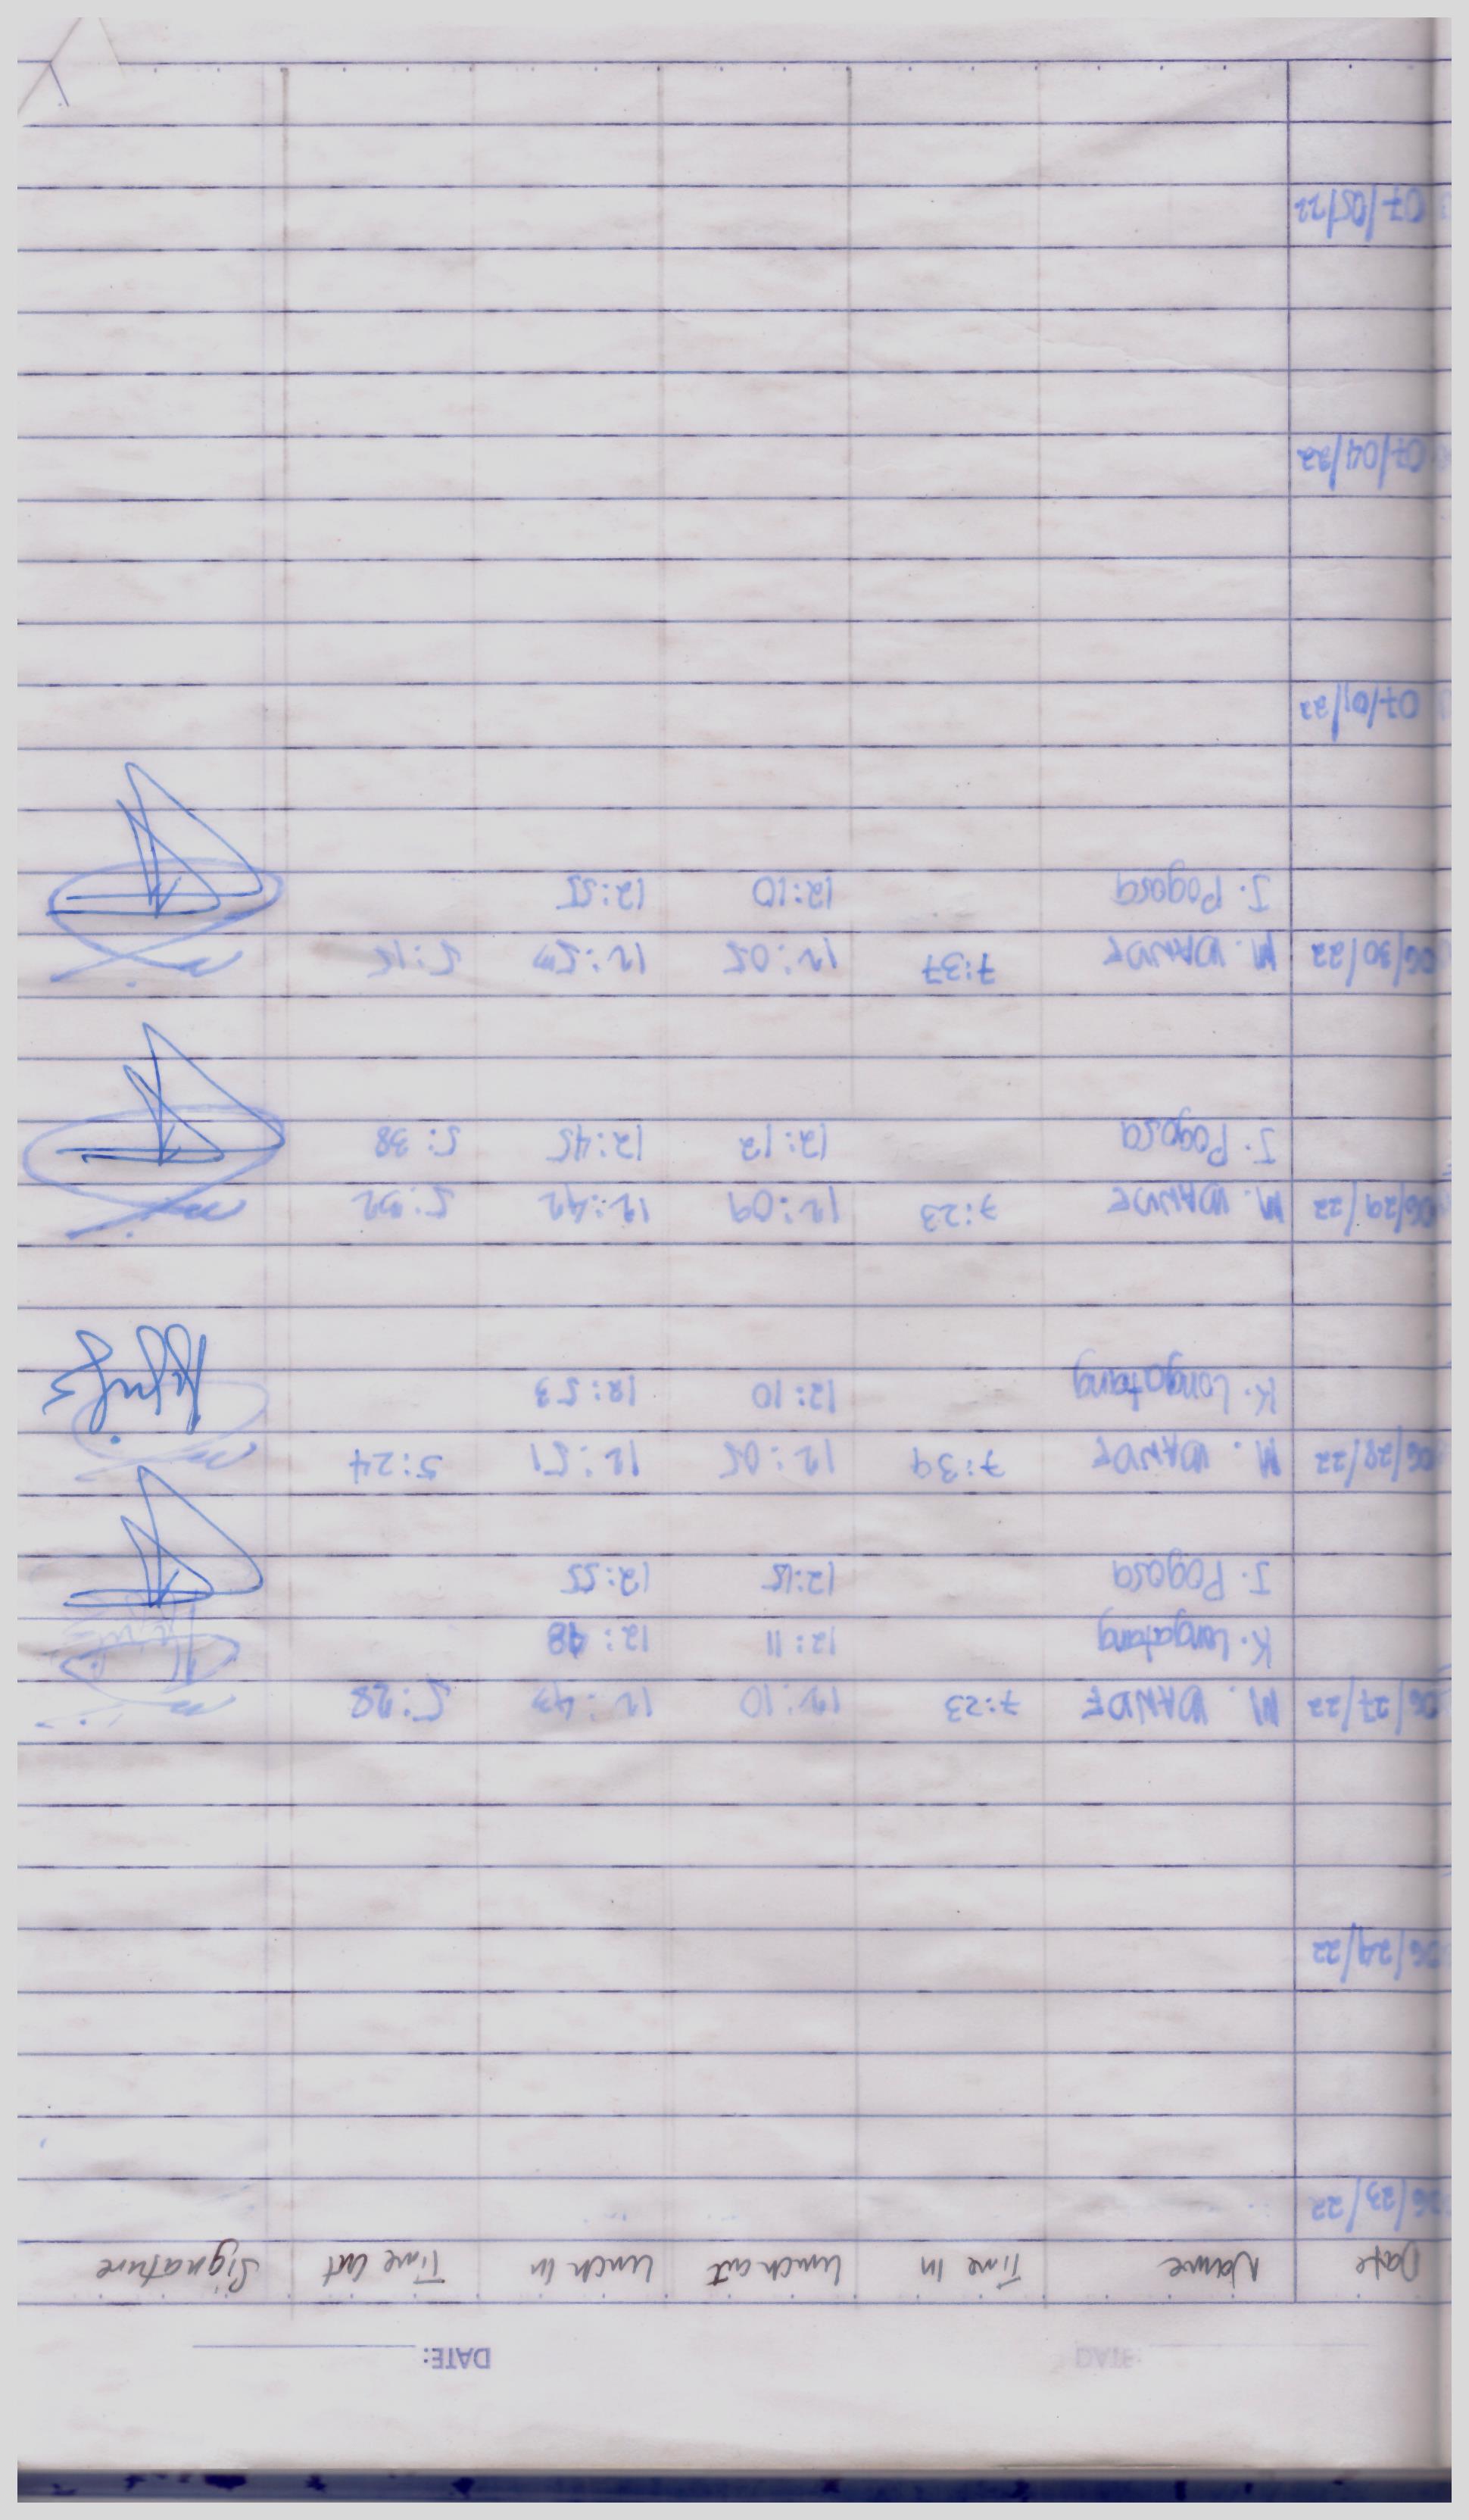 DATE:
DATE:
Date Name Time In Lunch out Lunch In Time Out Signature
06/23/22
06/24/22
06/27/22 M. DANDE 7:23 12:10 5:28
K. Longatang 12:11 12:48
J. Pogosa 12:15 12:55
06/28/22 M. DANDE 7:39 12:05 12:51 5:24
K. Longatang 12:10 12:53
06/29/22 M. DANDE 7:23 12:09 12:42 5:32
J. Pogosa 12:12 12:45 5:38
06/30/22 M. DANDE 7:37 12:05 5:15
J. Pogosa 12:10 12:55
07/01/22
07/04/22
07/05/22